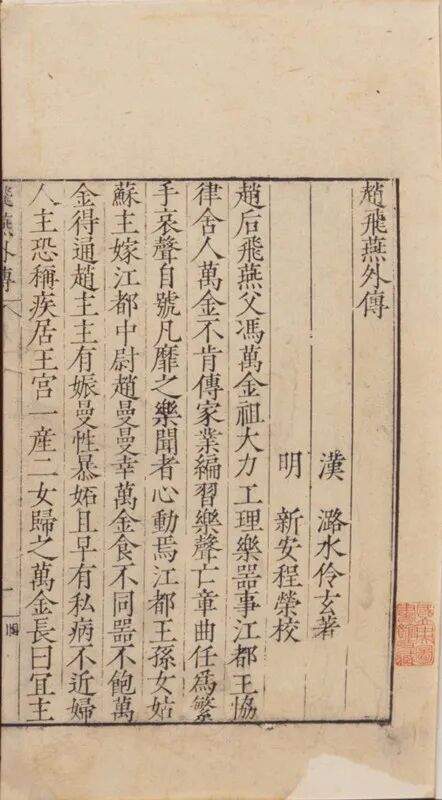 趙飛燕外傳
漢 潞水伶玄著
明 新安程榮校
趙后飛燕父馮萬金祖大力工理樂器事江都王協
律舍人萬金不肯傳家業編習樂聲亡章曲任爲繁
手哀聲自號凡靡之樂聞者心動焉江都王孫女姑
蘇主嫁江都中尉趙曼曼幸萬金食不同器不飽萬
金得通趙主主有娠曼性暴妬且早有私病不近婦
人主恐稱疾居王宮一産二女歸之萬金長曰宜主
飛燕外傳 一